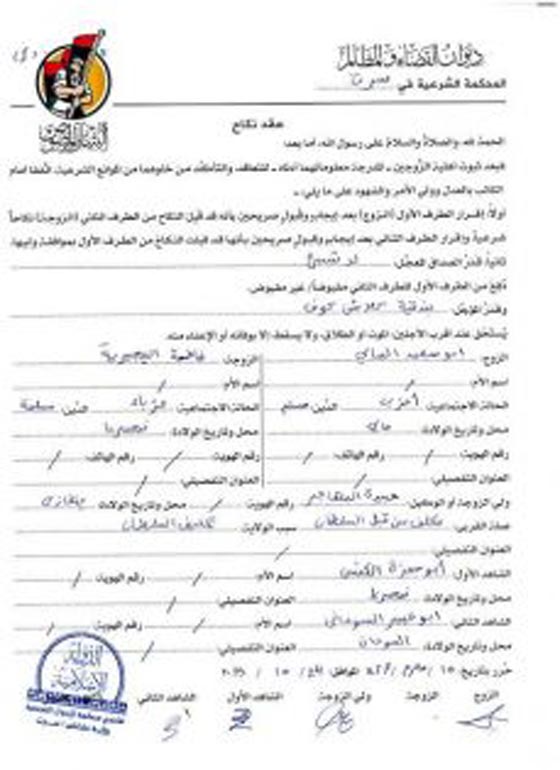 ديوان القضاء والمظالم
المحكمة الشرعية في سرت
عقد نكاح
الحمد لله والصلاة والسلام على رسول الله، أما بعد:
فبعد ثبوت أهلية الزوجين - المدرجة معلوماتهما أدناه - للتعاقد، والتأكد من خلوهما من الموانع الشرعية،
الكاتب بالعدل وولي الأمر والشهود على ما يلي:
أولاً: إقرار الطرف الأول (الزوج) بعد إيجاب وقبول صريحين بأنه قد قبل النكاح من الطرف الثاني (الزوجة) نكاحاً
شرعياً وإقرار الطرف الثاني بعد إيجاب وقبول صريحين بأنها قد قبلت النكاح من الطرف الأول بموافقة وليها.
ثانياً: قدر الصداق المعجل: لا شيء
دُفع من الطرف الأول للطرف الثاني مقبوضاً/ غير مقبوض.
وقدر المؤجل: بندقية
يُستحق عند أقرب الأجلين، الموت أو الطلاق، ولا يسقط إلا بوفائه أو الإعفاء منه.
الزوج: ابو سعيد المالي
الزوجة: فاطمة النيجيرية
اسم الأم: /
اسم الأم: /
الحالة الاجتماعية: أعزب الدين: مسلم
الحالة الاجتماعية: الدين: مسلمة
محل وتاريخ الولادة: مالي
محل وتاريخ الولادة: نيجيريا
رقم الهوية: / رقم الهاتف: /
رقم الهوية: / رقم الهاتف: /
العنوان التفصيلي: /
العنوان التفصيلي: /
ولي الزوجة أو الوكيل: رقم الهوية: / محل وتاريخ الولادة: بنغازي
صلة القربى: مكلف من قبل السلطان سبب الولاية: تكليف السلطان
العنوان التفصيلي: /
الشاهد الأول: أبو حمزة اسم الأم: / رقم الهوية: /
محل وتاريخ الولادة: نيجيريا العنوان التفصيلي: /
الشاهد الثاني: السوداني اسم الأم: / رقم الهوية: /
محل وتاريخ الولادة: السودان العنوان التفصيلي: /
حُرر بتاريخ: ١٥ / محرم / الموافق:
الزوج الزوجة ولي الزوجة الشاهد الأول الشاهد الثاني
الدولة
الإسلامية